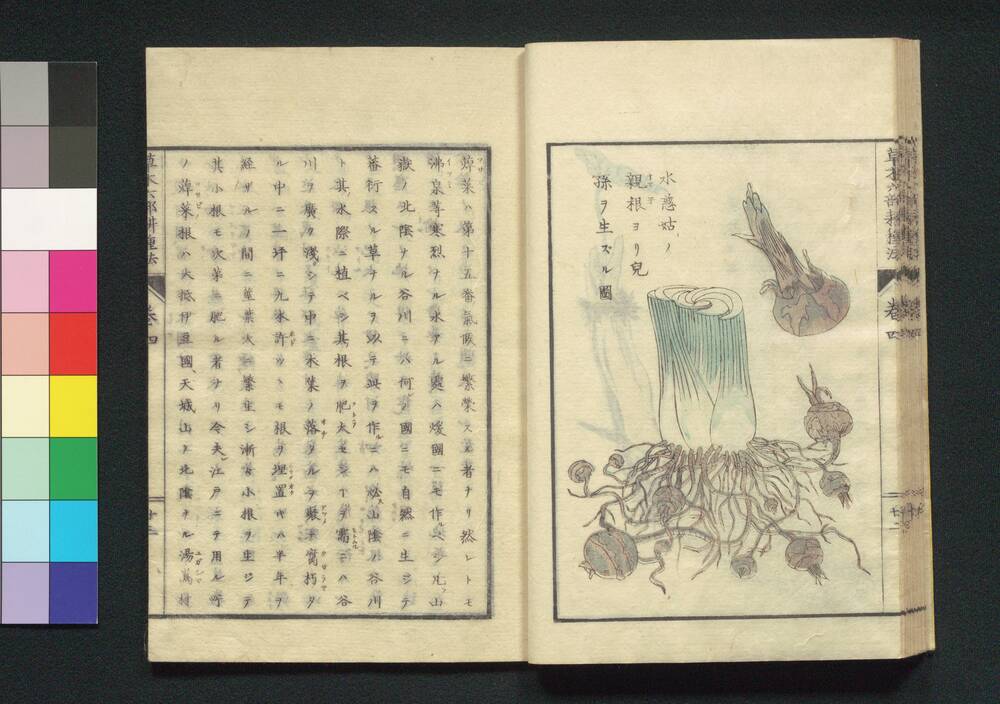 水慈姑ノ
親根ヨリ兒
孫ヲ生ズル圖
草木六部耕種法
卷四
蔊菜ハ第十五番氣候ニ繁榮スル者ナリ然レトモ
沸泉等寒烈ナル水アル處ハ煖國ニモ作ルベシ凡ソ山
嶽ノ北陰ナル谷川ニハ何レノ國ニモ自然ニ生ジテ
蕃衍スル草ナルヲ以テ此ヲ作ルニハ必ズ山陰ノ谷川
ト其水際ニ植ベシ其根ヲ肥大セシ丁ヲ需ニハ谷
川ヲ廣ク淺シテ中ニ木葉ノ落タルヲ聚テ腐朽タ
ル中ニ一坪ニ九本許ヅヽモ根ヲ埋置ベハ半年ヲ
經ザルノ間ニ莖葉大ニ繁生シ漸々小根ヲ生ジテ
其小根モ次第ニ肥ル者ナリ今夫江戸ニテ用ル所
ノ蔊菜根ハ大抵伊豆國天城山ノ北陰ナル湯嶌村
草木六部耕種法
卷四